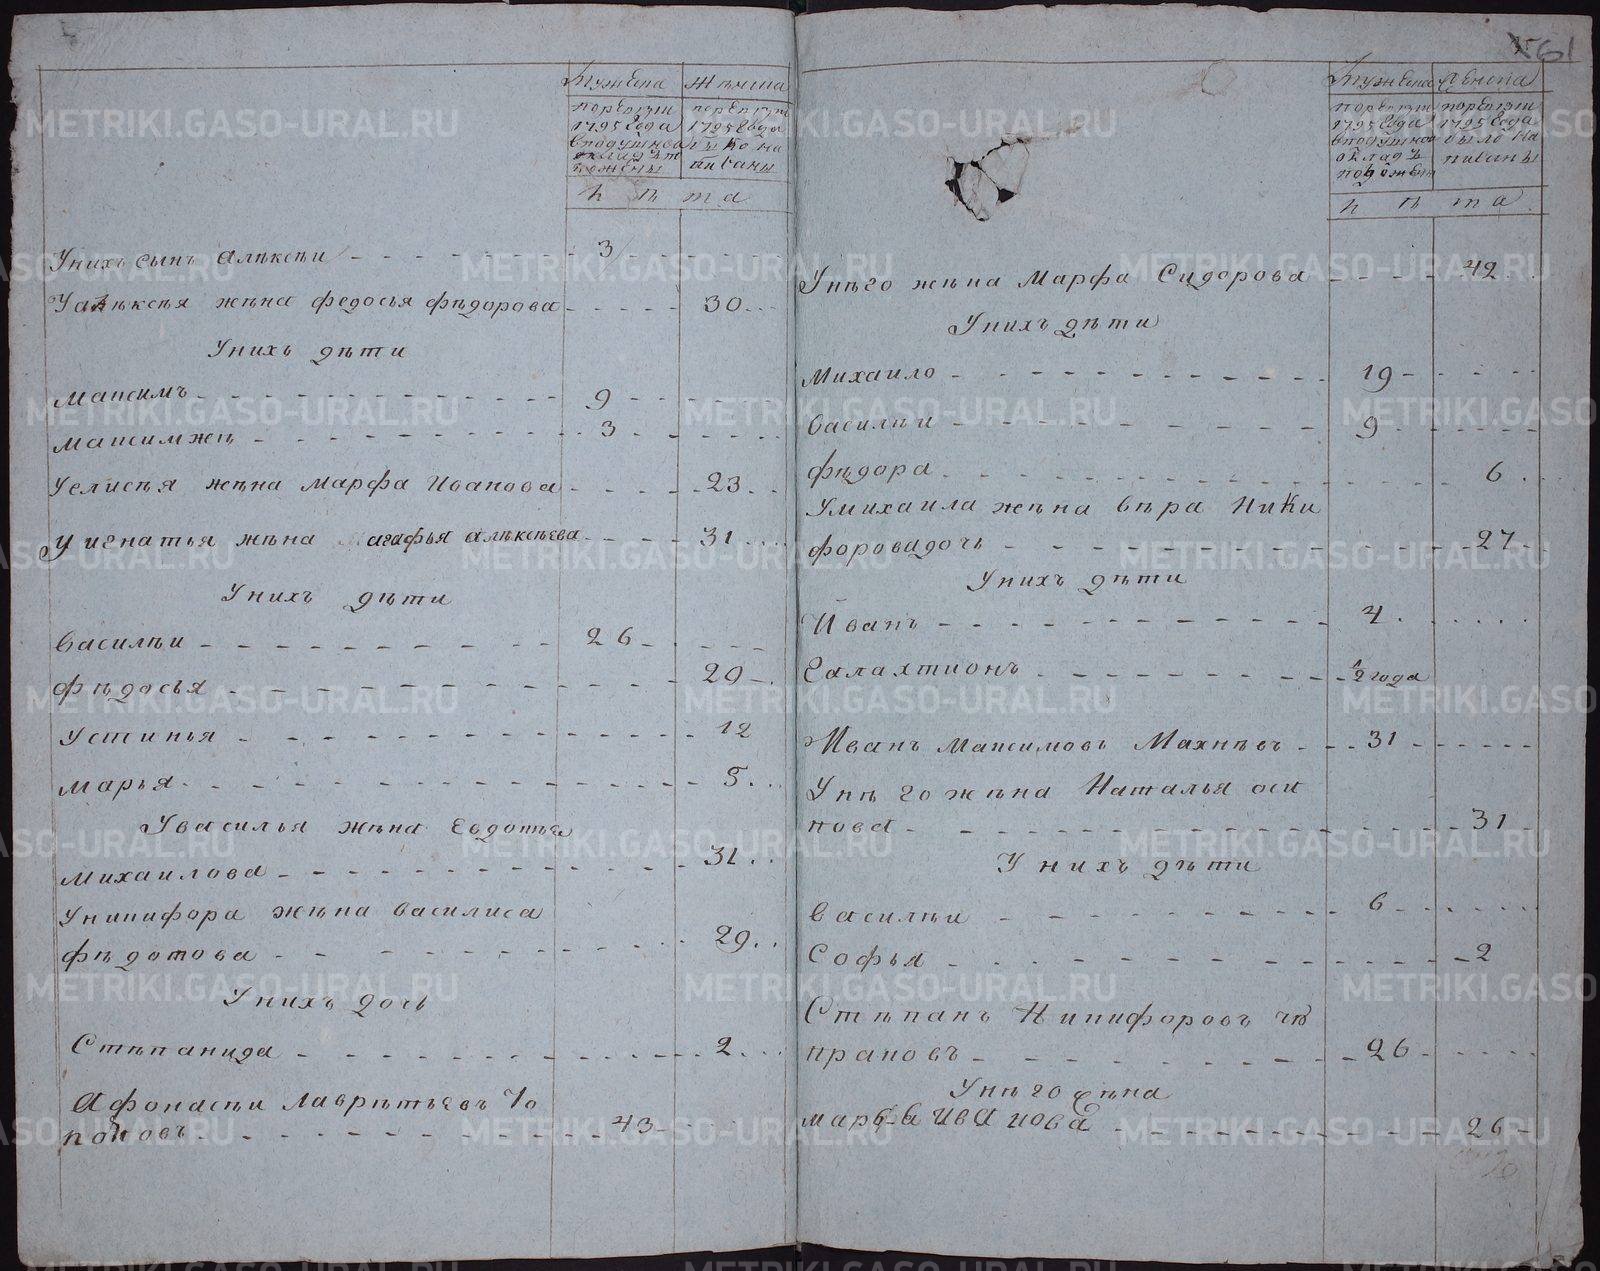 Мужеска Женска
поревизіи
1795 Года
вподушно
окладъ п
ложены
поревизіи
1795 Года
было на
писаны
л ѣ т а
Унихъ сынъ алѣксѣи 3
Уалѣксѣя жѣна федосья фѣдорова 30
Унихъ дѣти
максимъ 9
максимжѣ 3
Уелисѣя жѣна марфа Иванова 23
Уигнатья жѣна агафья алѣксѣева 31
Унихъ дѣти
василѣи 26
фѣдосья 20
Устинья 12
марья 5
Увасилья жѣна Евдотья
михаилова 31
Уникифора жѣна василиса
фѣдотова 29
Унихъ дочь
Стѣпанида 2
Афонасѣи лаврѣтьевъ
43
61
Мужеска Женска
поревизіи
1795 Года
вподушно
окладъ
положены
поревизіи
1795 Года
было на
писаны
л ѣ т а
Унѣго жѣна Марфа Сидорова 42
Унихъ дѣти
михаило 19
василѣи 9
фѣдора 6
Умихаила жѣна вѣра Ники
форовадочь 27
Унихъ дѣти
Иванъ 4
Галахтионъ 1/2 года
Иванъ максимовъ Махнѣвъ 31
Унѣго жѣна Наталья оси
пова 31
Унихъ дѣти
василѣи 6
Софья 2
Стѣпанъ Никифоровъ чѣ
прановъ 26
Унѣго жѣна
марья ивановa 26
METRIKI.GASO-URAL.RU